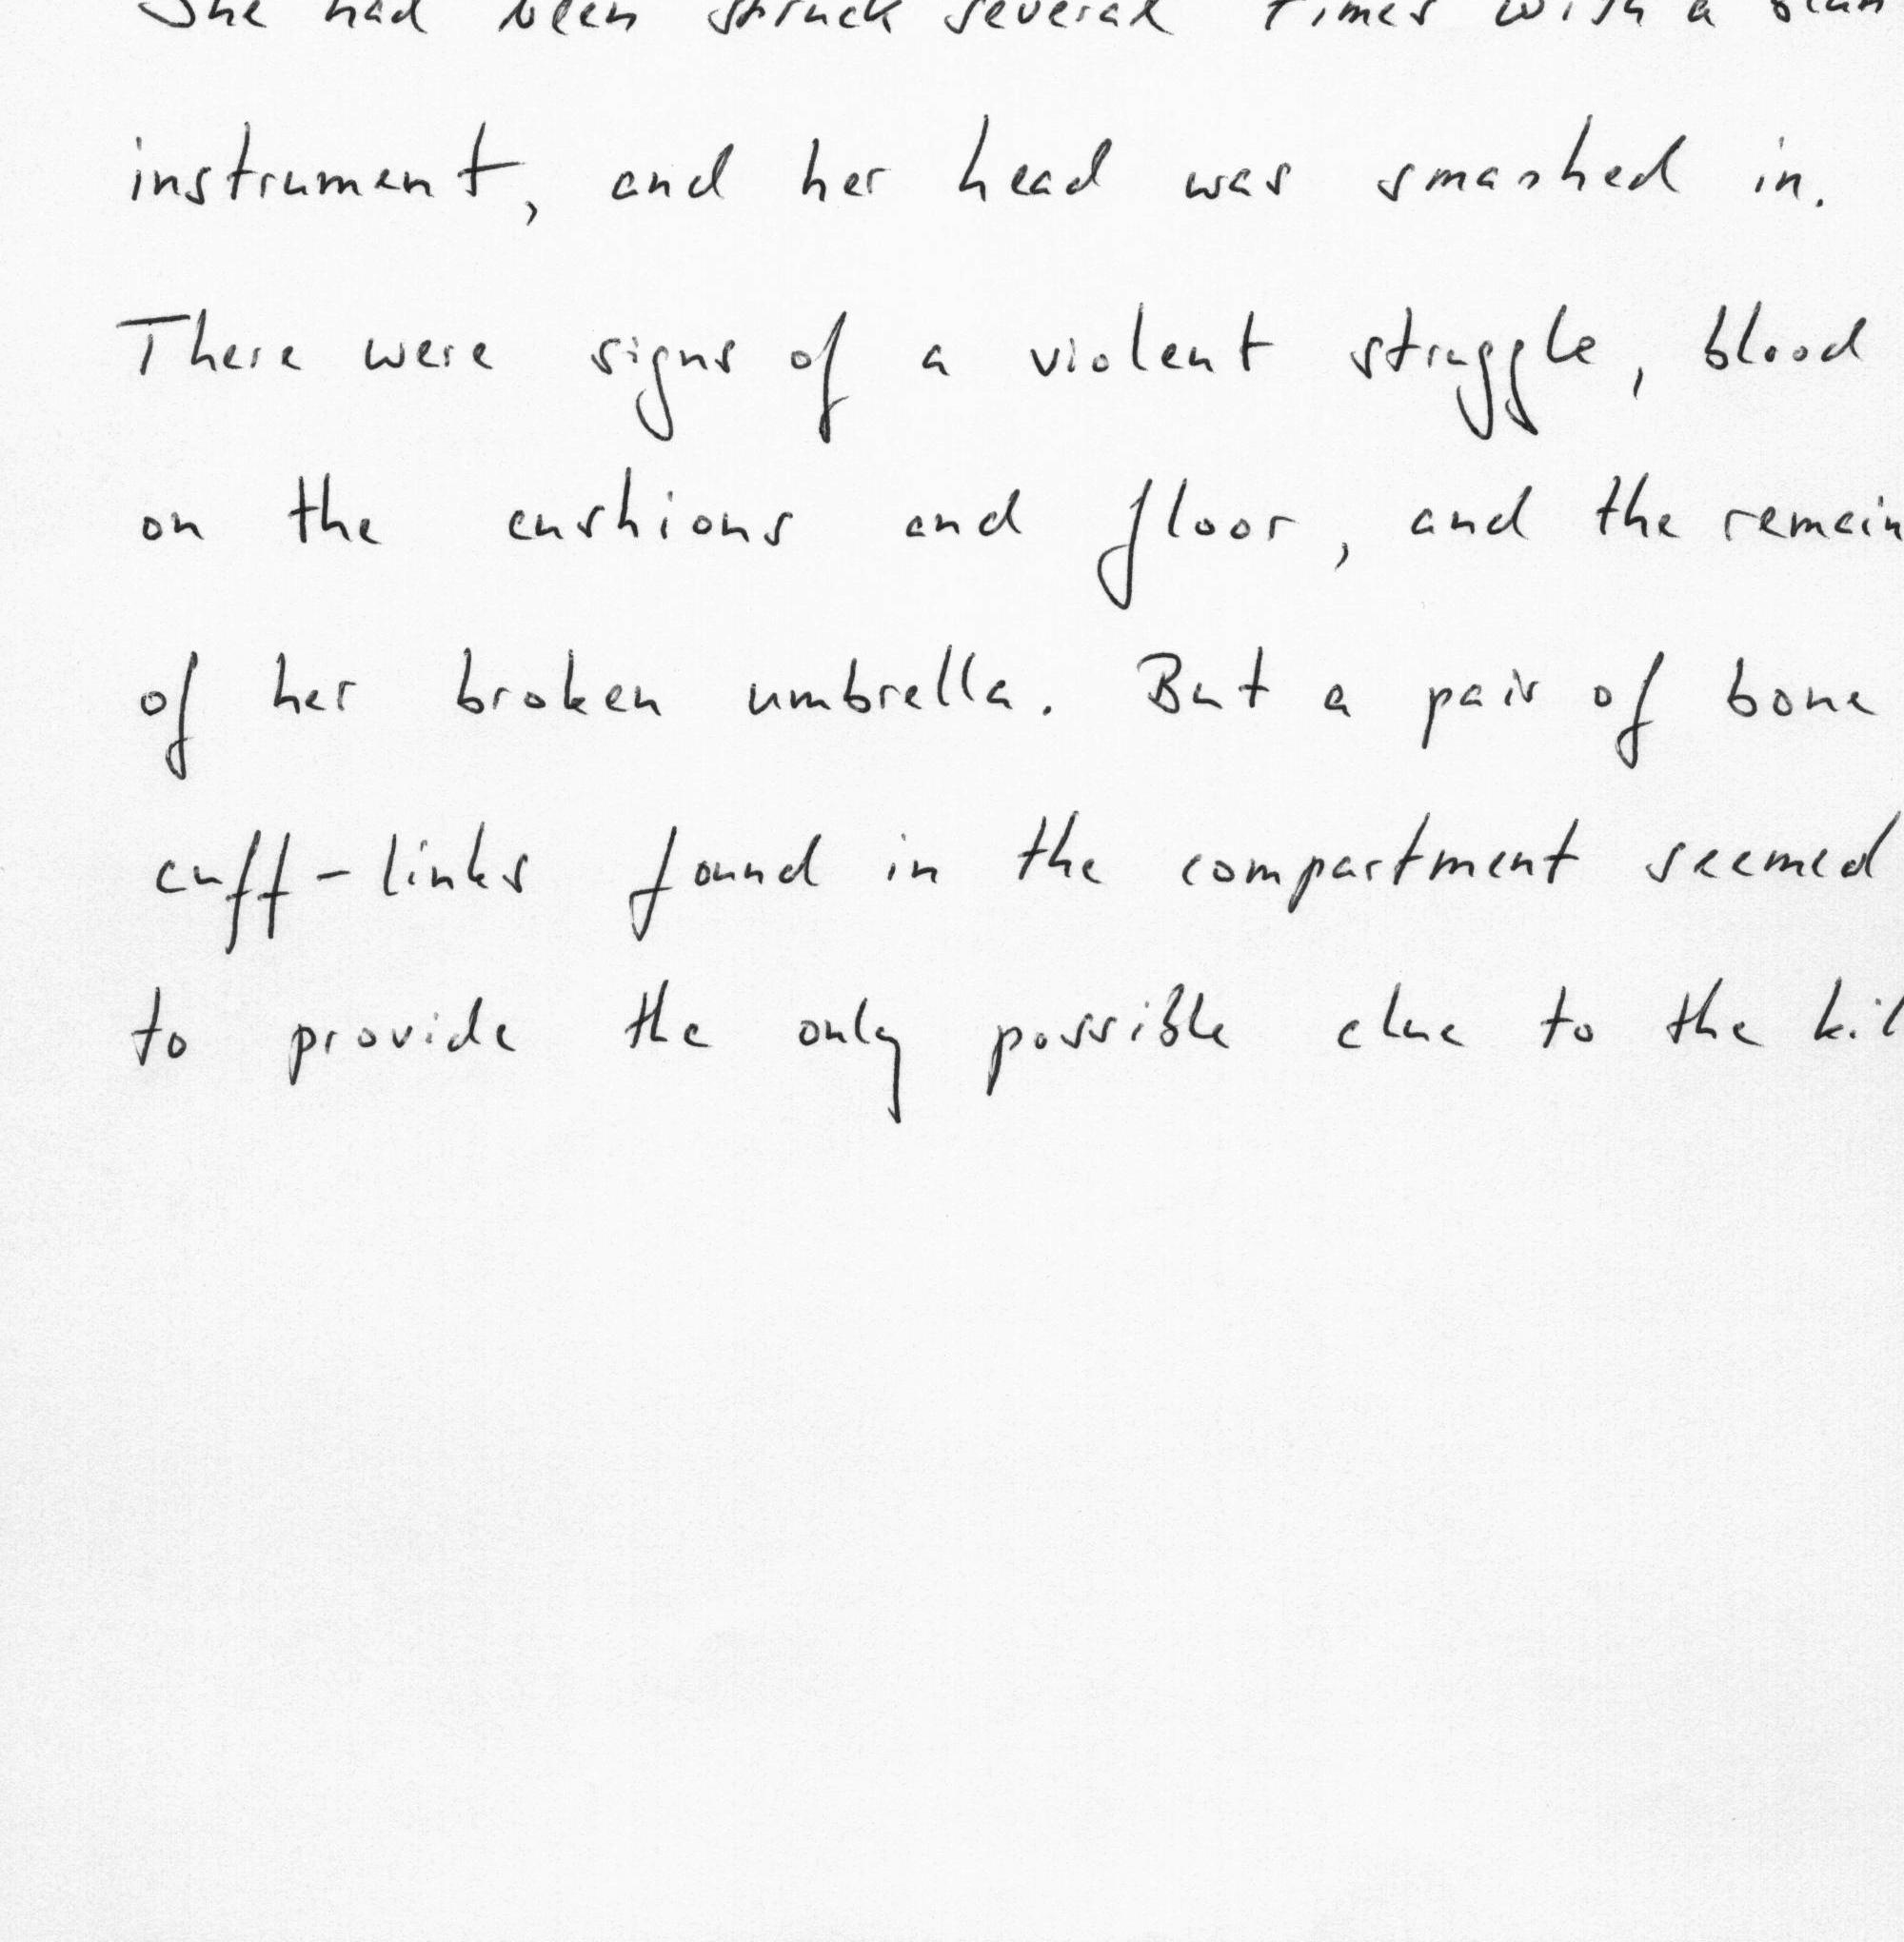 She had been struck several times with a blun
instrument, and her head was smashed in.
There were signs of a violent struggle, blood
on the cushions and floor, and the remain
of her broken umbrella. But a pair of bone
cuff-links found in the compartment seemed
to provide the only possible clue to the kil